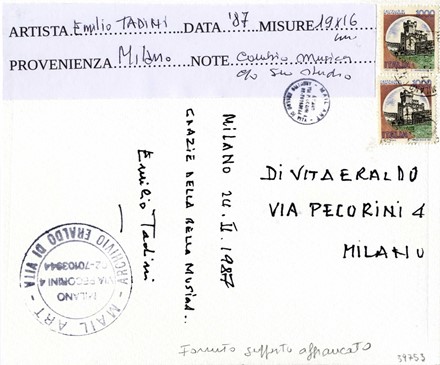 ARTISTA Emilio TADINI DATA '87 MISURE 19x16 cm
PROVENIENZA Milano NOTE Cambio musica
c/o suo studio
1000
ITALIA
1000
ITALIA
MAIL ART
DI VITA ERALDO
VIA PECORINI 4
MILANO
MILANO 24.II.1987
GRAZIE DELLA BELLA MUSICA..
Emilio Tadini
MAIL ART - ARCHIVIO ERALDO DI VITA
VIA PECORINI 4
MILANO
02-70103944
Formato supporto affrancato
39753